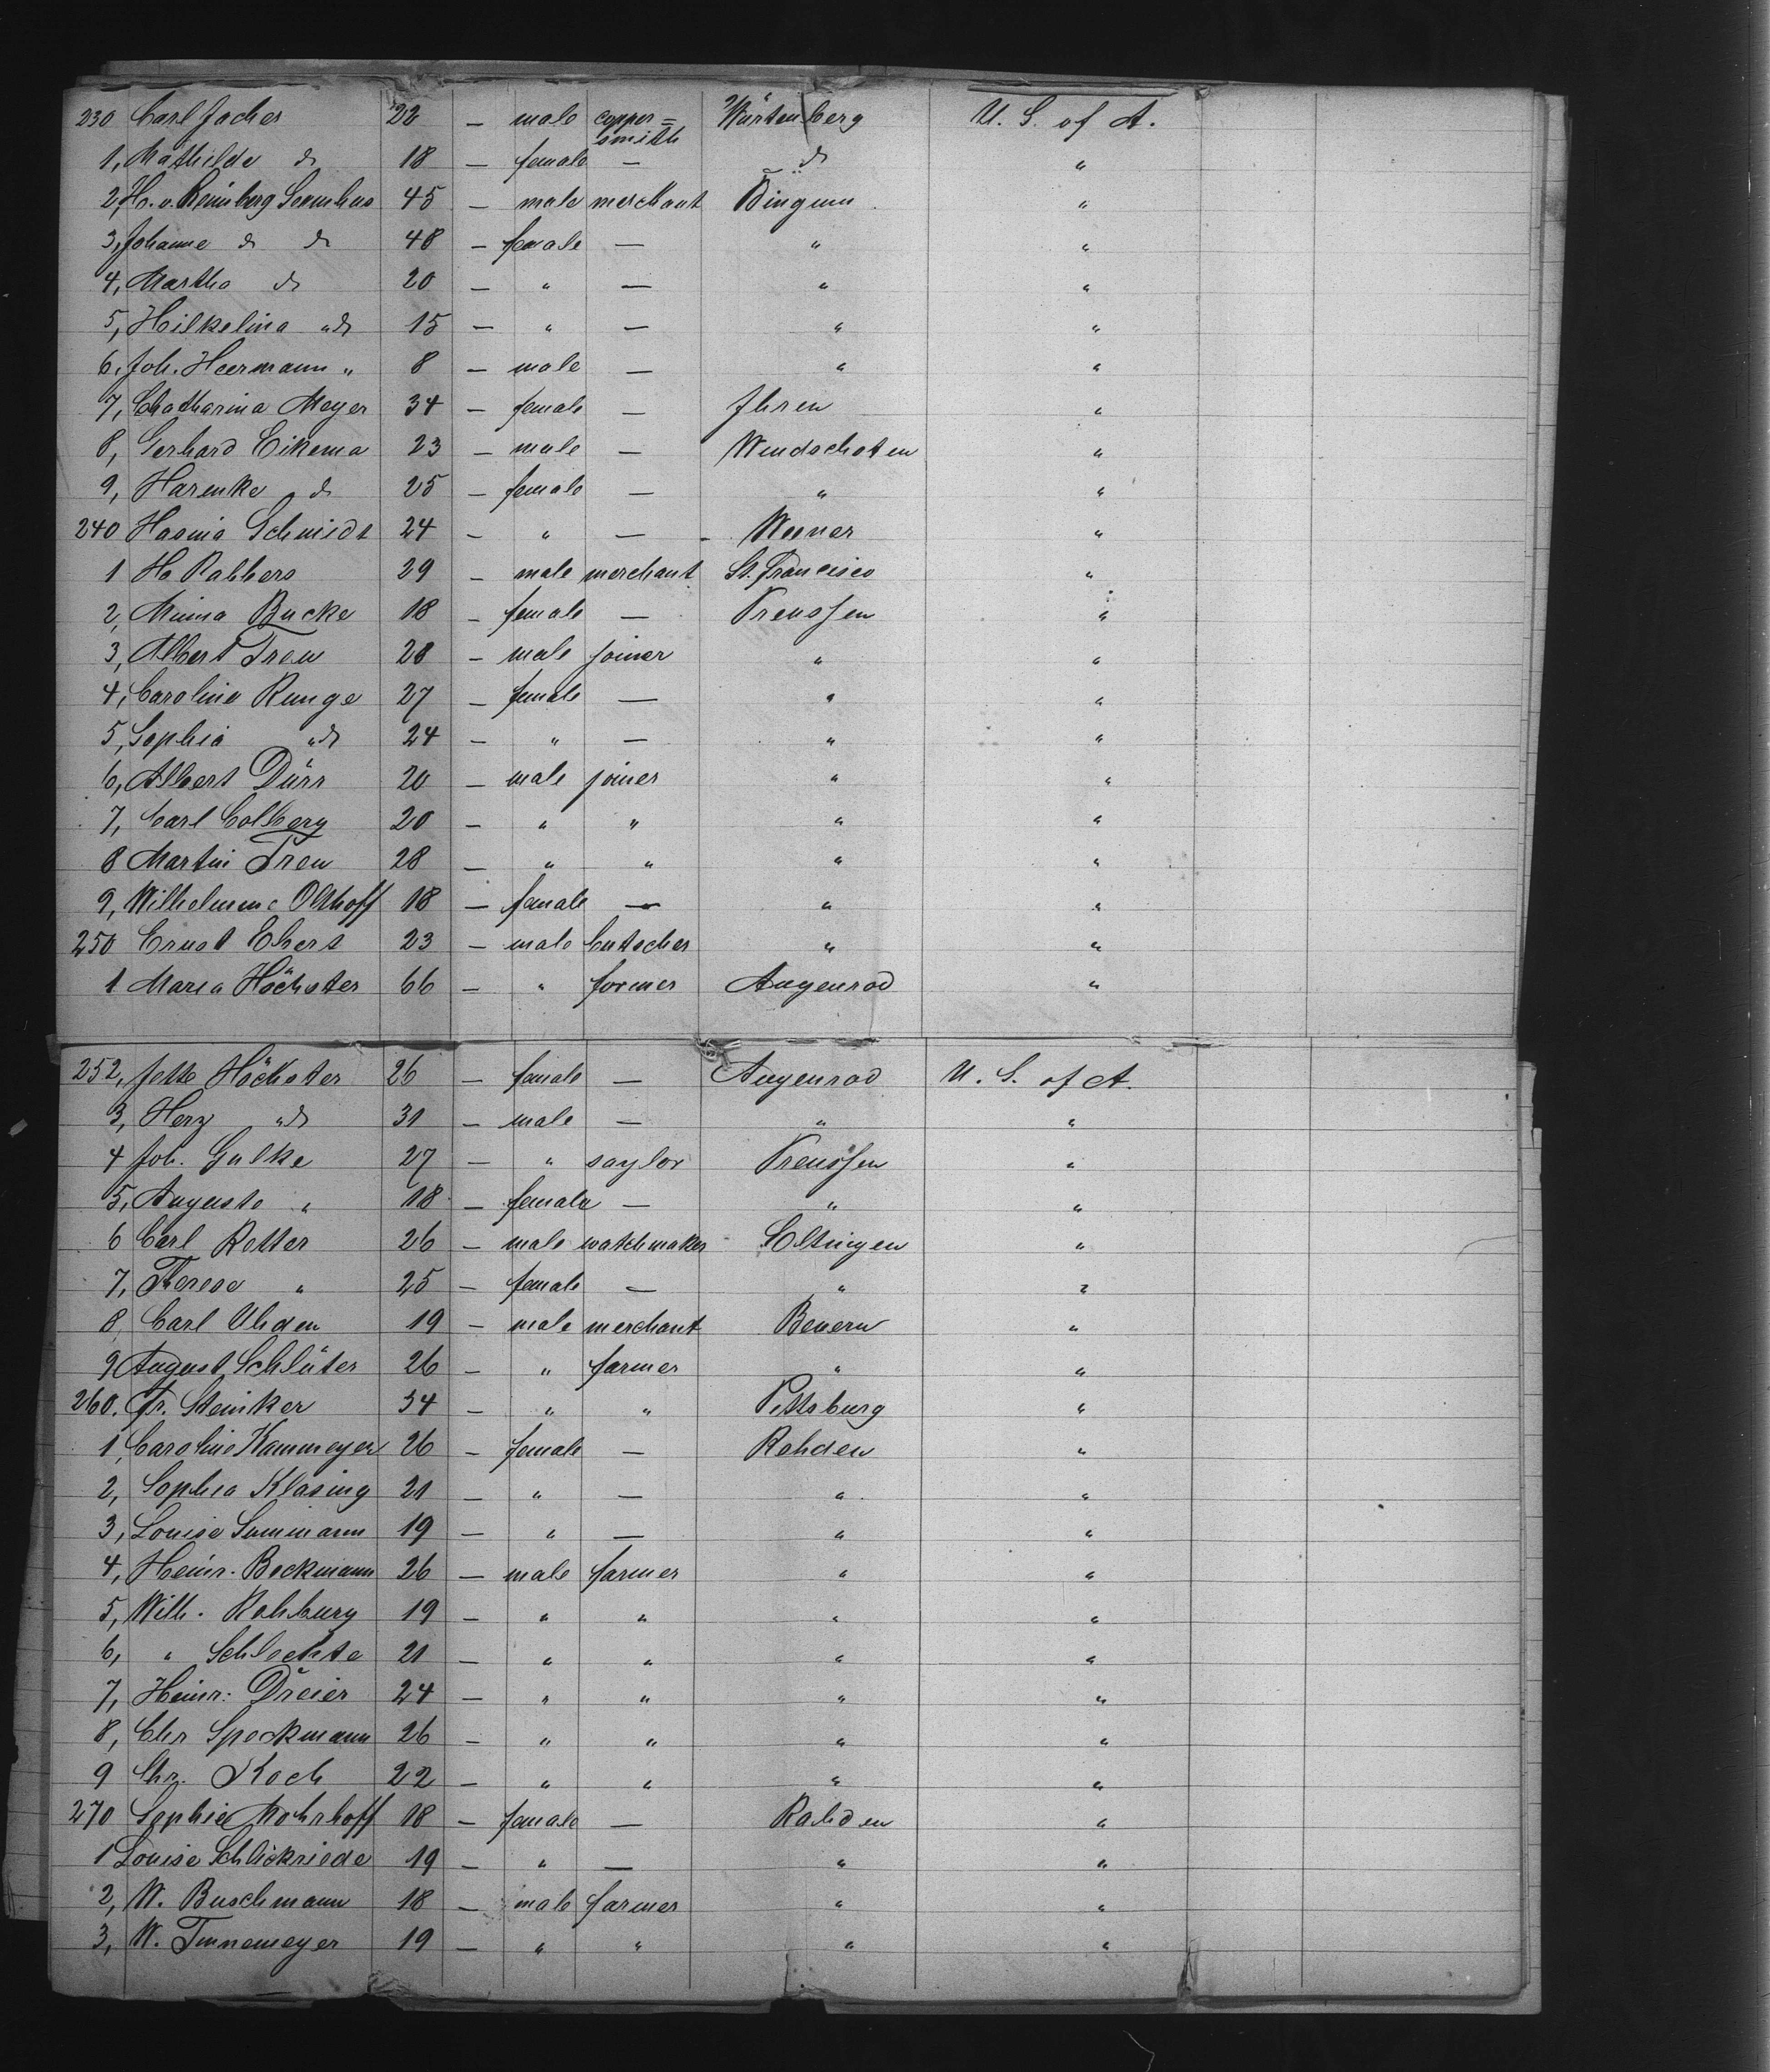 230 Carl Jacher 22 — male copper= Würtenberg U. S. of A.
smith
1, Mathilde do 18 — female — do "
2, H. v. Reinberg 45 — male merchant Bingum "
3, Johanne do do 48 — female — " "
4, Martha do 20 — " — " "
5, Hilkelina "do 15 — " — " "
6. Joh. Heermann " 8 — male — " "
7, Chatharina Meyer 34 — female — Ihren "
8, Gerhard Eikema 23 — male — Windschoten "
9, Harenke do 25 — female — " "
240 Hasina Schmidt 24 — " — Weener "
1 H. Rabbers 29 — male merchant St. Francisco "
2, Minna Bucke 18 — female — Preussen "
3, Albert Treu 28 — male joiner " "
4, Caroline Runge 27 — female — " "
5, Sophia "do 24 — " — " "
6, Albert Dürr 20 — male joiner " "
7, Carl Colberg 20 — " " " "
8 Martin Treu 28 — " " " "
9, Wilhelmine Olthoff 18 — female — " "
250 Ernst Ebert 23 — male butscher " "
1 Maria Höchster 66 — " former Angenrod "
252, Jette Höchster 26 — female — Angenrod U. S. of A.
3, Herz "do 31 — male — " "
4 Joh. Gulke 27 — " saylor Preussen "
5, Auguste " 18 — female — " "
6 Carl Retter 26 — male watchmaker Eltingen "
7, Therese " 25 — female — " "
8 Carl Uhden 19 — male merchant Bevern "
9 August Schlüter 26 — " farmer " "
260. Fr. Steinker 34 — " " Pittsburg "
1, Caroline Kammeyer 26 — female — Rahden "
2, Sophia Klasing 21 — " — " "
3, Louise 19 — " — " "
4, Heinr. Beckmann 26 — male farmer " "
5, Wilh. Rehburg 19 — " " " "
6, " Schlechte 21 — " " " "
7, Heinr. Dreier 24 — " " " "
8, Chr Speckmann 26 — " " " "
9 Chr. Koch 22 — " " " "
270 Sophie Mohrhoff 18 — female — Rahden "
1 Louise Schlickriede 19 — " — " "
2, W. Buschmann 18 — male farmer " "
3, W. Tinnemeyer 19 — " " " "